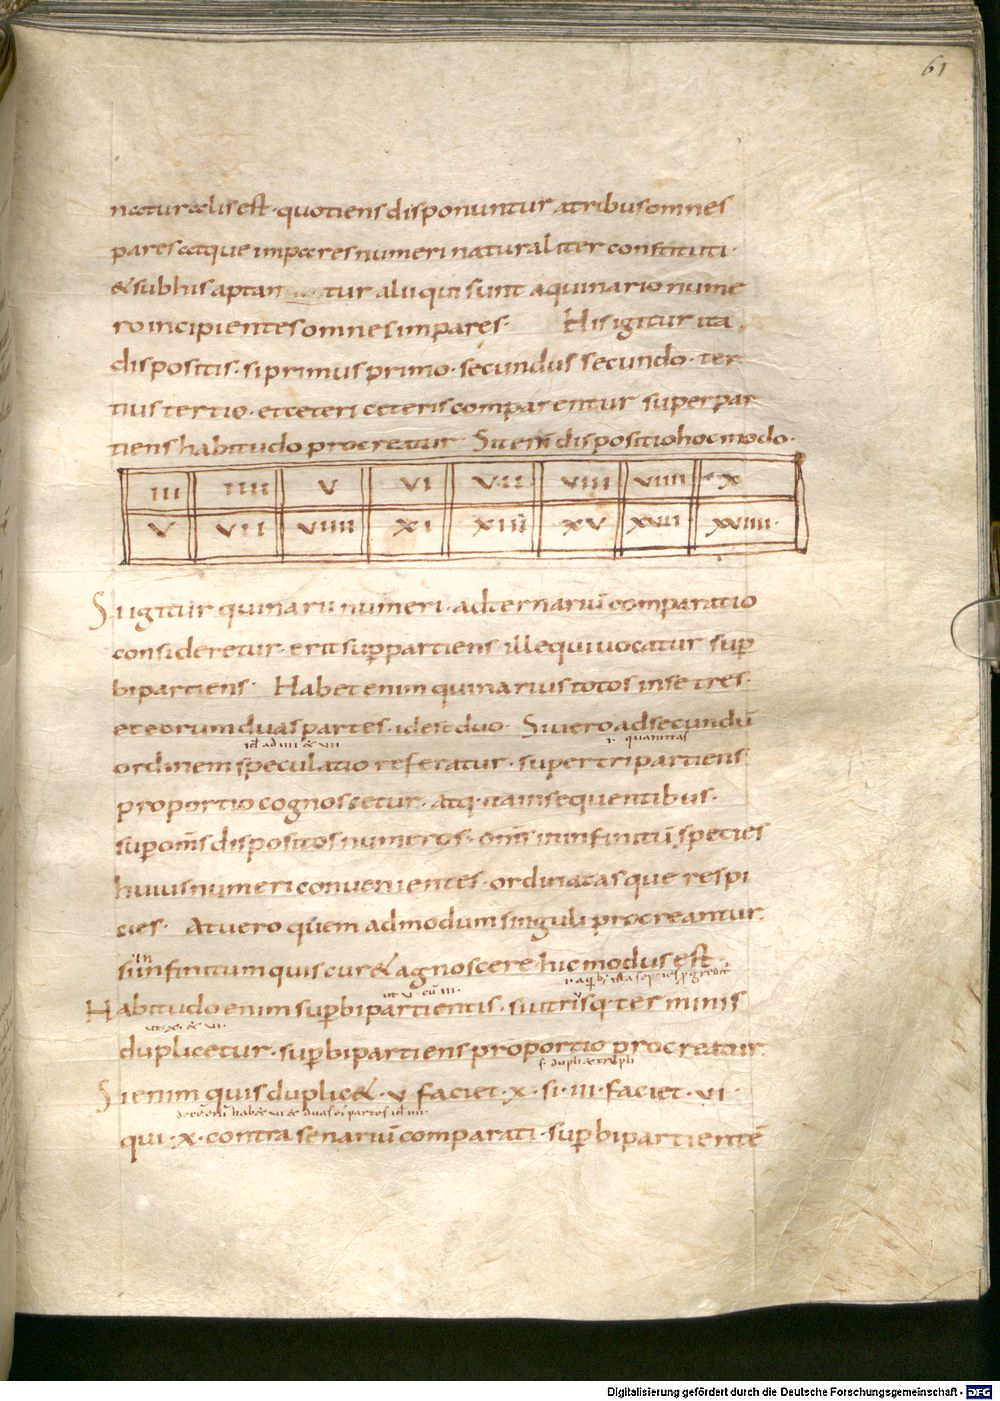 61
naturalis est · quotiens disponuntur atribus omnes
pares atque impares numeri naturaliter constituti ·
& sub his aptan tur alii qui sunt aquinario nume
ro incipientes omnes impares · His igitur ita
dispositis · si primus primo · secundus secundo · ter
tius tertio · et ceteri ceteris comparentur super par
tiens habitudo procreatur Sit enī dispositio hoc modo ·
III IIII V VI VII VIII VIIII X
V VII VIIII XI XIII XV XVII XVIIII ·
Si igitur quinarii numeri · ad ternariū comparatio
consideretur · erit sup̄partiens ille qui uocatur sup̄
bipartiens · Habet enim quinarius totos in se tres ·
et eorum duas partes · id est duo · Si uero ad secundū
id ad IIII & VII quantitas
ordinem speculatio referatur · super tripartiens
proportio cognoscetur · atq · ita in sequentibus ·
sup om̄s dispositos numeros · om̄s in infinitū species
huius numeri conuenientes · ordinatas que respi
cies · At uero quem admodum singuli procreantur
in
si infinitum quis curet agnoscere · hic modus est ·
ut V · cū III ·
Habitudo enim sup̄bipartientis · si utrisq · terminis
ut · X · & · VI ·
duplicetur · sup̄bipartiens proportio procreatur
Si enim quis duplic& · V faciet · X · si · III · faciet · VI ·
qui · X · contra senariū comparati · sup̄bipartientē
Digitalisierung gefördert durch die Deutsche Forschungsgemeinschaft - DFG